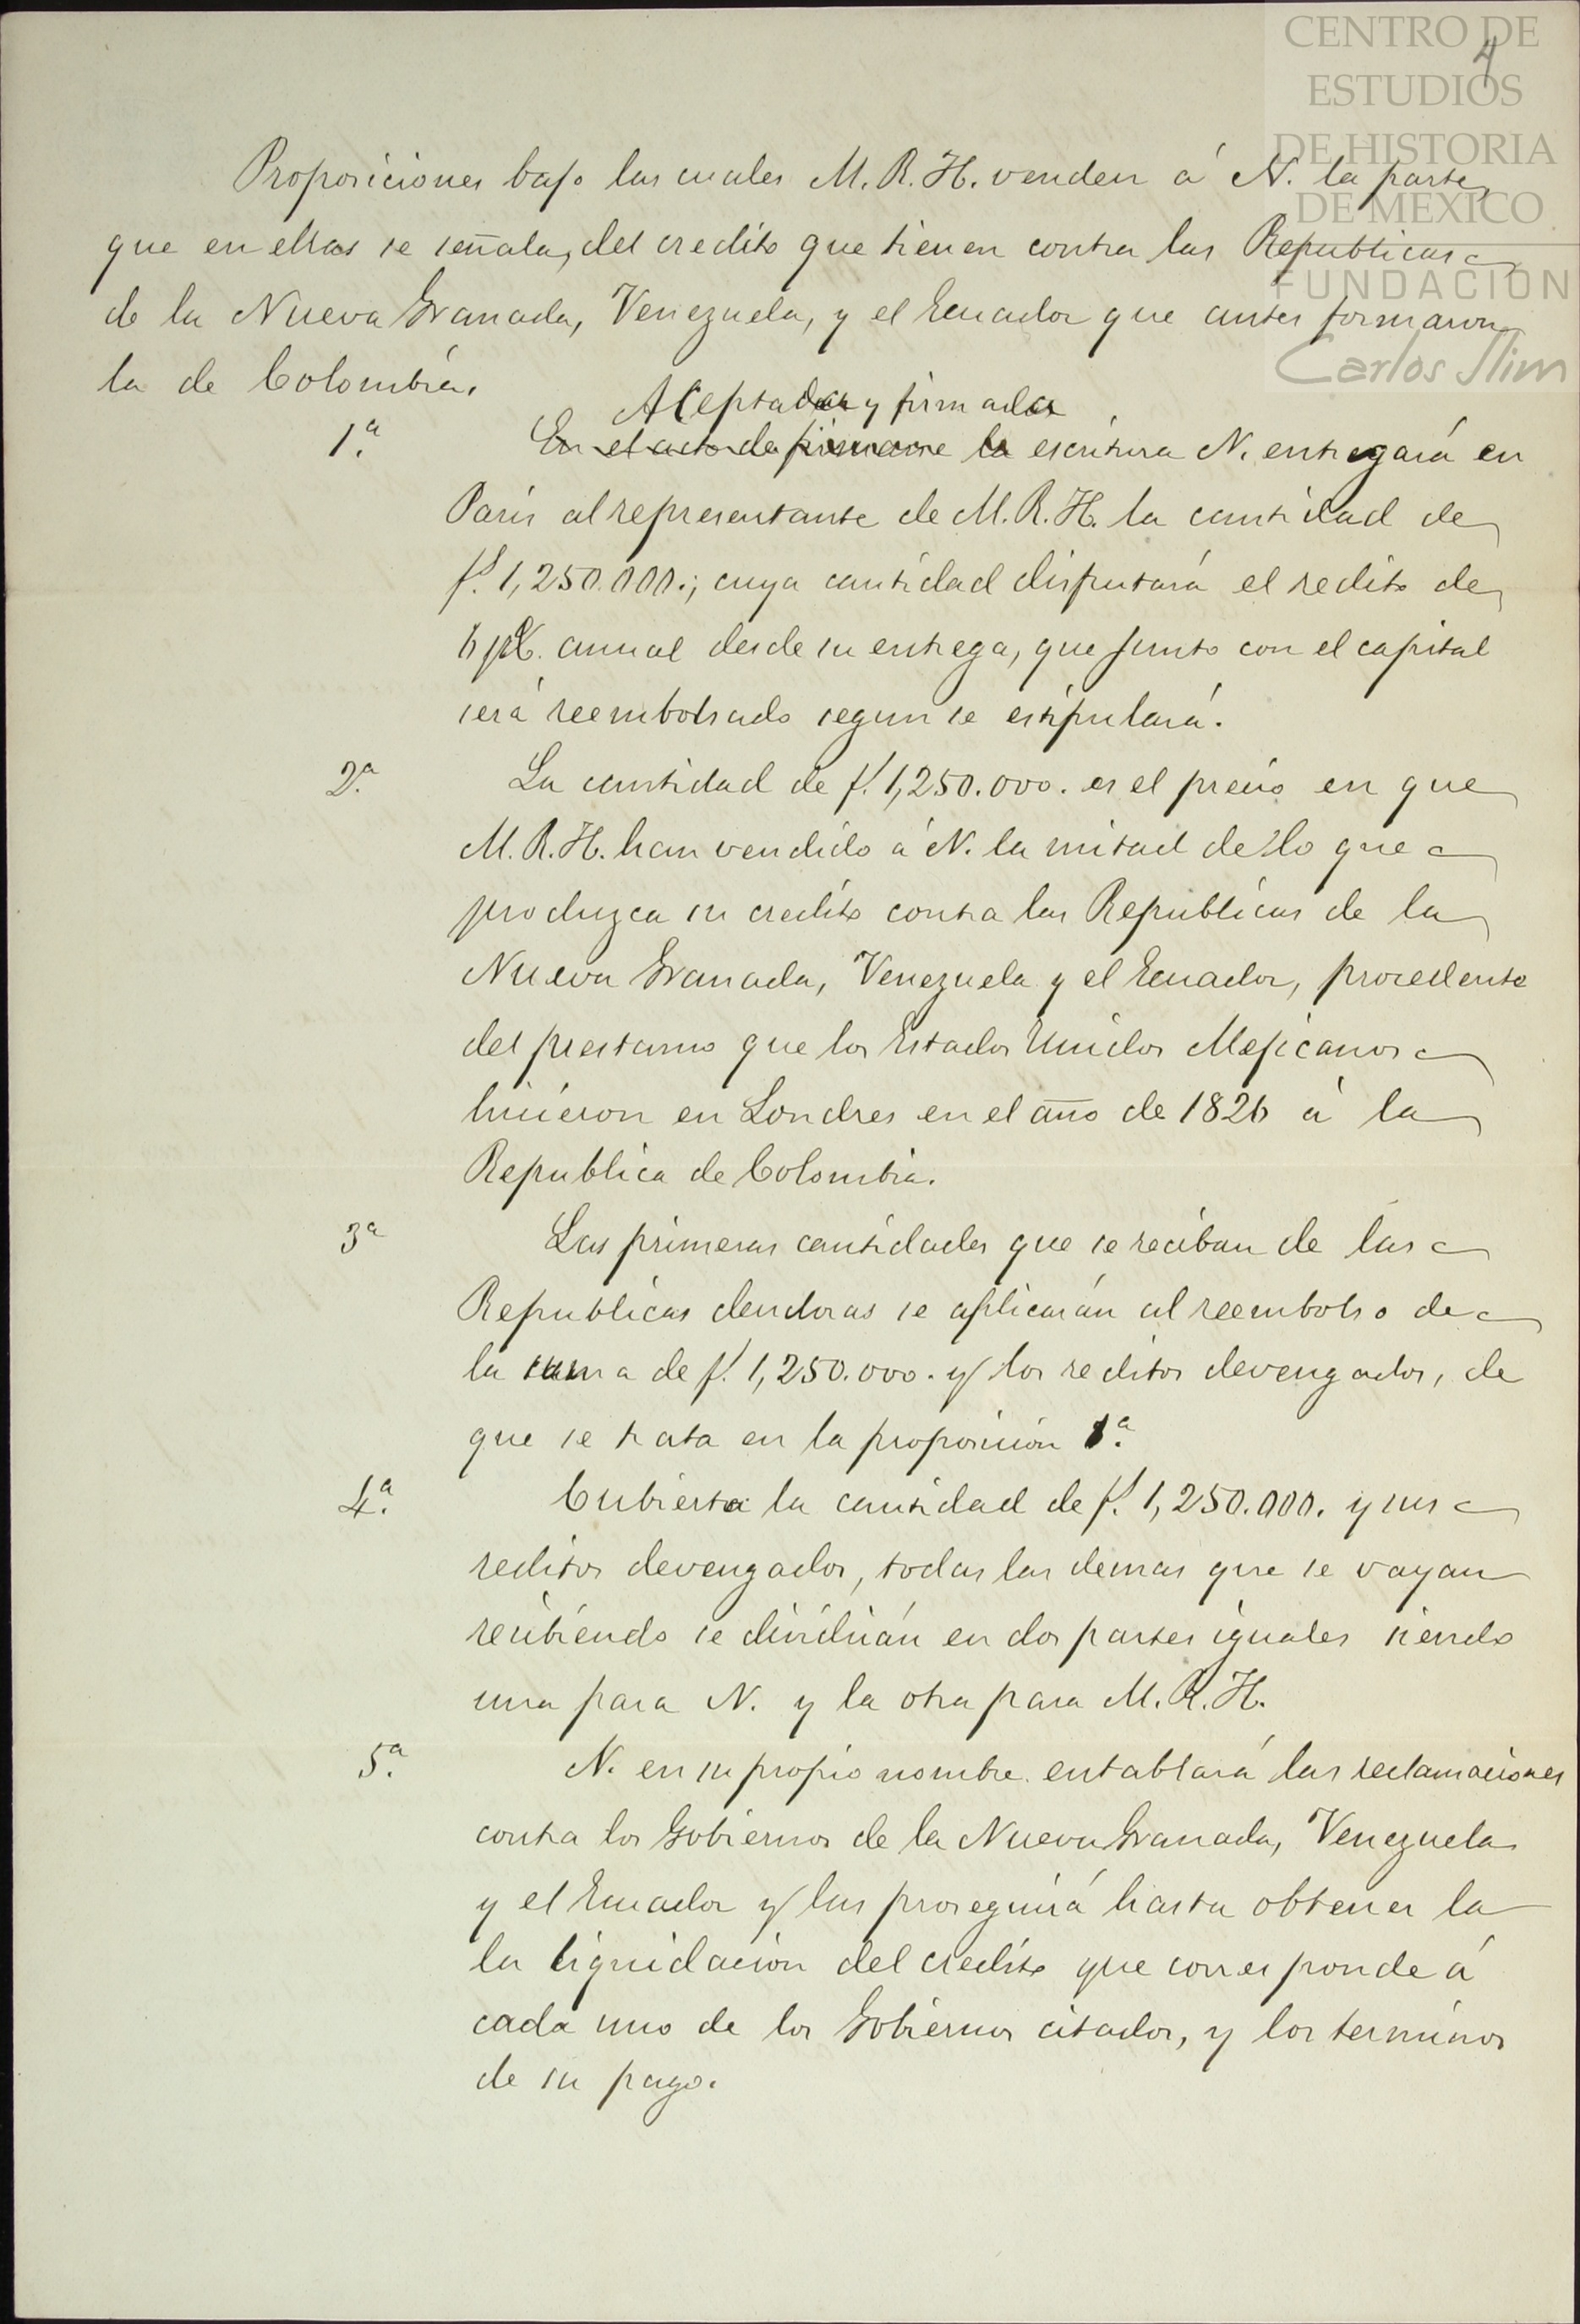 CENTRO DE
ESTUDIOS
DE HISTORIA
DE MEXICO
FUNDACIÓN
Carlos Slim
4
Proposiciones bajo las cuales M. R. H. venden á N. la parte
que en ellas se señala, del credito que tienen contra las Republicas
de la Nueva Granada, Venezuela, y el Ecuador que antes formaron
la de Colombia.
Aceptada y firmada
1.ª En el acto de firmarse la escritura N. entregará en
Paris al representante de M. R. H. la cantidad de
f.^s 1,250.000.; cuya cantidad disfrutará el redito de
6 p%. anual desde su entrega, que junto con el capital
será reembolsado segun se estipulará.
2.ª La cantidad de f.^s 1,250.000. es el precio en que
M. R. H. han vendido á N. la mitad de lo que
produzca su credito contra las Republicas de la
Nueva Granada, Venezuela y el Ecuador, procedente
del prestamo que los Estados Unidos Mejicanos
hicieron en Londres en el año de 1826 á la
Republica de Colombia.
3ª Las primeras cantidades que se reciban de las
Republicas deudoras se aplicarán al reembolso de
la suma de f.^s 1,250.000. y los reditos devengados, de
que se trata en la proposicion 1ª.
4.ª Cubierta la cantidad de f.^s 1,250.000. y sus
reditos devengados, todas las demas que se vayan
recibiendo se dividirán en dos partes iguales siendo
una para N. y la otra para M. R. H.
5.ª N. en su propio nombre entablará las reclamaciones
contra los Gobiernos de la Nueva Granada, Venezuela
y el Ecuador y las proseguirá hasta obtener la
la liquidacion del credito que corresponde á
cada uno de los Gobiernos citados, y los terminos
de su pago.